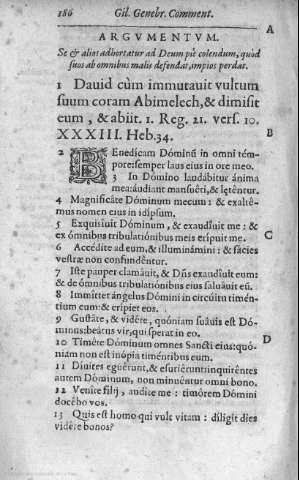 186 Gil. Genebr. Comment.
A
ARGVMENTVM.
Se & alios adhortatur ad Deum piè colendum, quòd
suos ab omnibus malis defendat, impios perdat.
1 Dauid cùm immutauit vultum
suum coram Abimelech, & dimisit
eum, & abiit. 1. Reg. 21. vers. 10.
B
XXXIII. Heb. 34.
2 BEnedicam Dóminũ in omni tém-
pore: semper laus eius in ore meo.
3 In Dómino laudábitur ánima
mea: áudiant mansuéti, & lęténtur.
4 Magnificáte Dóminum mecum: & exaltê-
mus nomen eius in idípsum.
5 Exquisíuit Dóminum, & exaudíuit me: &
C
ex ómnibus tribulatiónibus meis erípuit me.
6 Accédite ad eum, & illuminámini: & fácies
vestræ non confundéntur.
7 Iste pauper clamáuit, & Dñs exaudíuit eum:
& de ómnibus tribulatiónibus eius saluáuit eũ.
8 Immíttet ángelus Dómini in circúitu timén-
tium eum: & erípiet eos.
9 Gustáte, & vidéte, quóniam suáuis est Dó-
minus: beátus vir, qui sperat in eo.
D
10 Timéte Dóminum omnes Sancti eius: quó-
niam non est inópia timéntibus eum.
11 Diuites eguérunt, & esuriérunt: inquiréntes
autem Dóminum, non minuéntur omni bono.
12 Veníte fílij, audíte me: timórem Dómini
docébo vos.
13 Quis est homo qui vult vitam: díligit dies
vidére bonos?